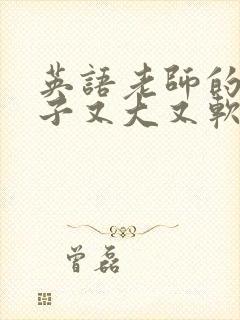 英語老師的
子又大又軟
曾磊